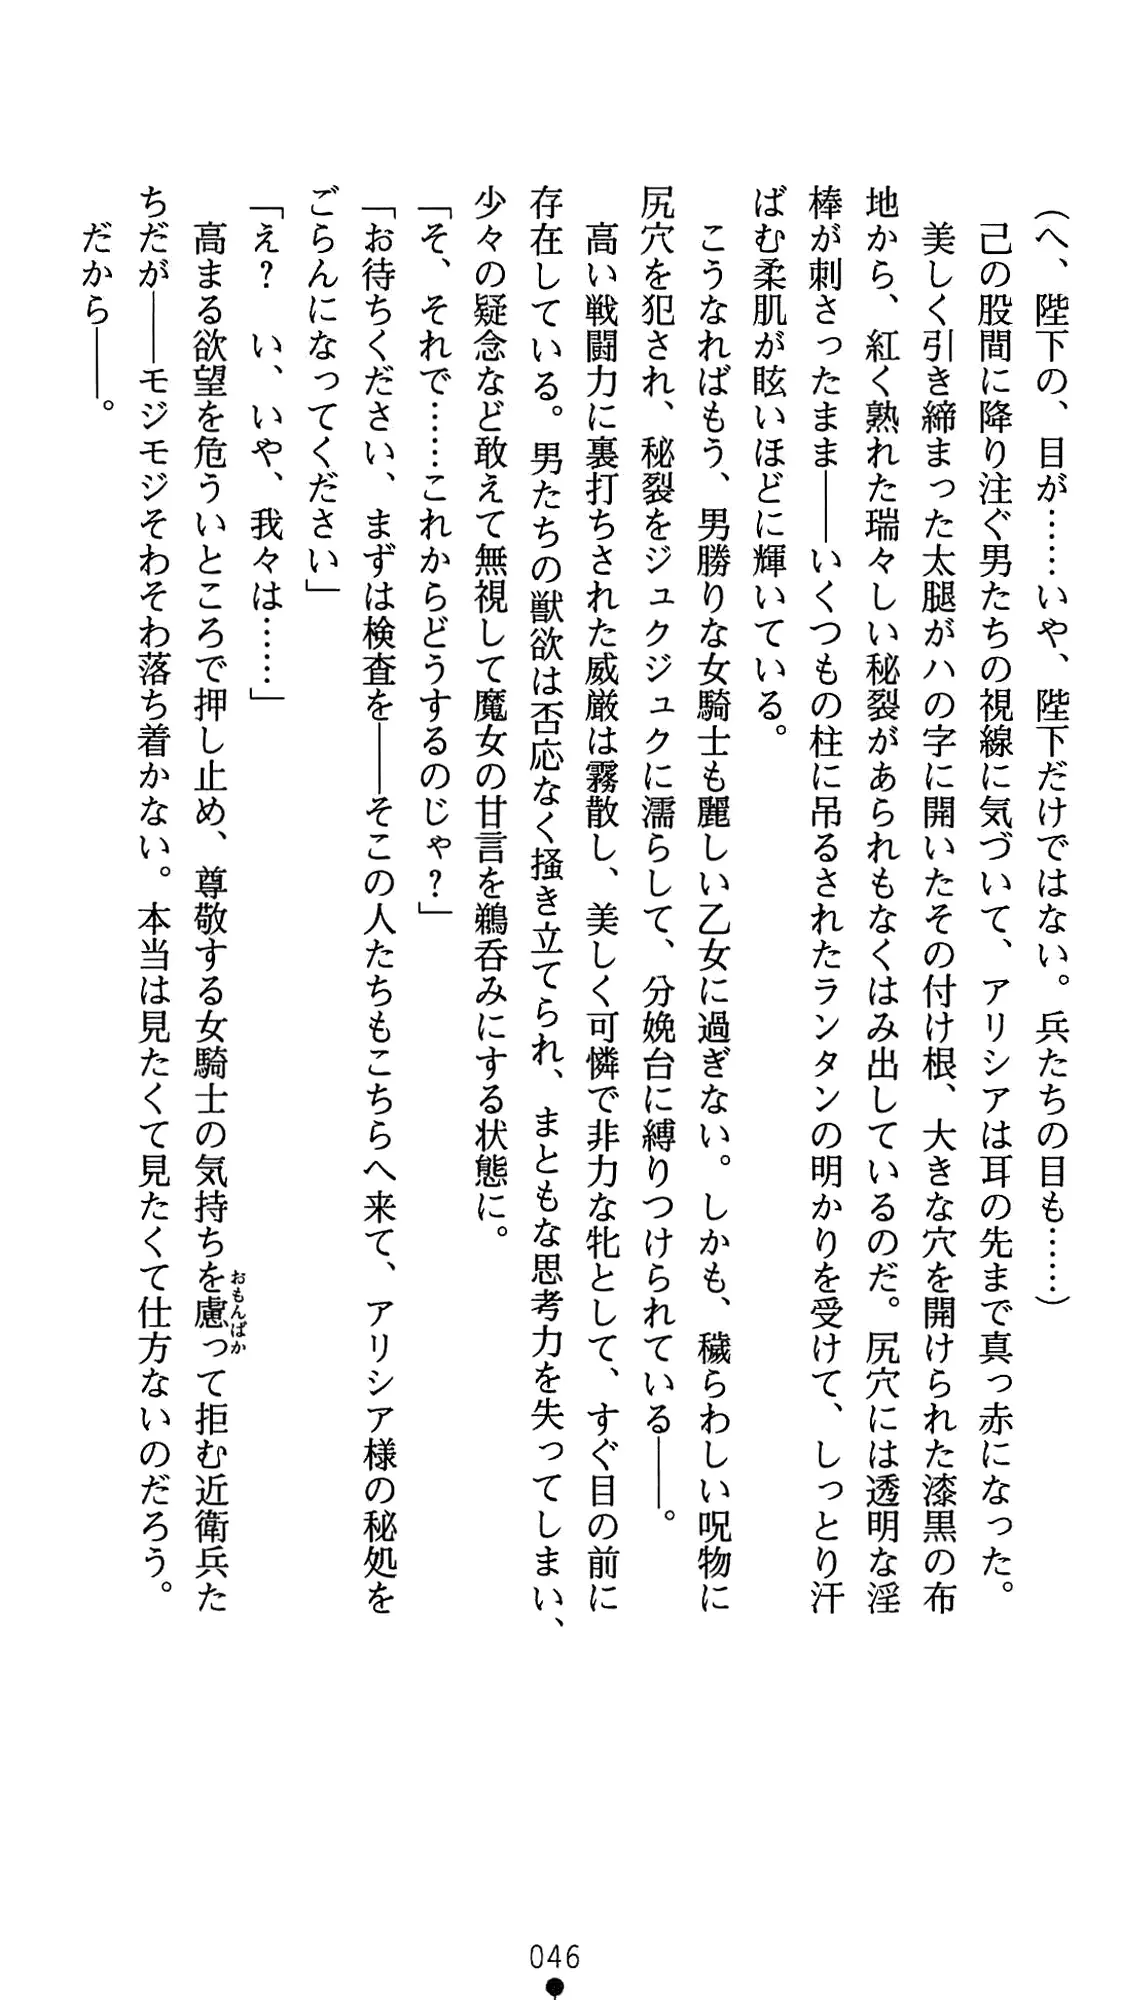 （へ、陛下の、目が……いや、陛下だけではない。兵たちの目も……）
己の股間に降り注ぐ男たちの視線に気づいて、アリシアは耳の先まで真っ赤になった。
美しく引き締まった太腿がハの字に開いたその付け根、大きな穴を開けられた漆黒の布
地から、紅く熟れた瑞々しい秘裂があられもなくはみ出しているのだ。尻穴には透明な淫
棒が刺さったまま――いくつもの柱に吊るされたランタンの明かりを受けて、しっとり汗
ばむ柔肌が眩いほどに輝いている。
こうなればもう、男勝りな女騎士も麗しい乙女に過ぎない。しかも、穢らわしい呪物に
尻穴を犯され、秘裂をジュクジュクに濡らして、分娩台に縛りつけられている――。
高い戦闘力に裏打ちされた威厳は霧散し、美しく可憐で非力な牝として、すぐ目の前に
存在している。男たちの獣欲は否応なく掻き立てられ、まともな思考力を失ってしまい、
少々の疑念など敢えて無視して魔女の甘言を鵜呑みにする状態に。
「そ、それで……これからどうするのじゃ？」
「お待ちください、まずは検査を――そこの人たちもこちらへ来て、アリシア様の秘処を
ごらんになってください」
「え？　い、いや、我々は……」
高まる欲望を危ういところで押し止め、尊敬する女騎士の気持ちを慮って拒む近衛兵た
おもんばか
ちだが――モジモジそわそわ落ち着かない。本当は見たくて見たくて仕方ないのだろう。
だから――。
046